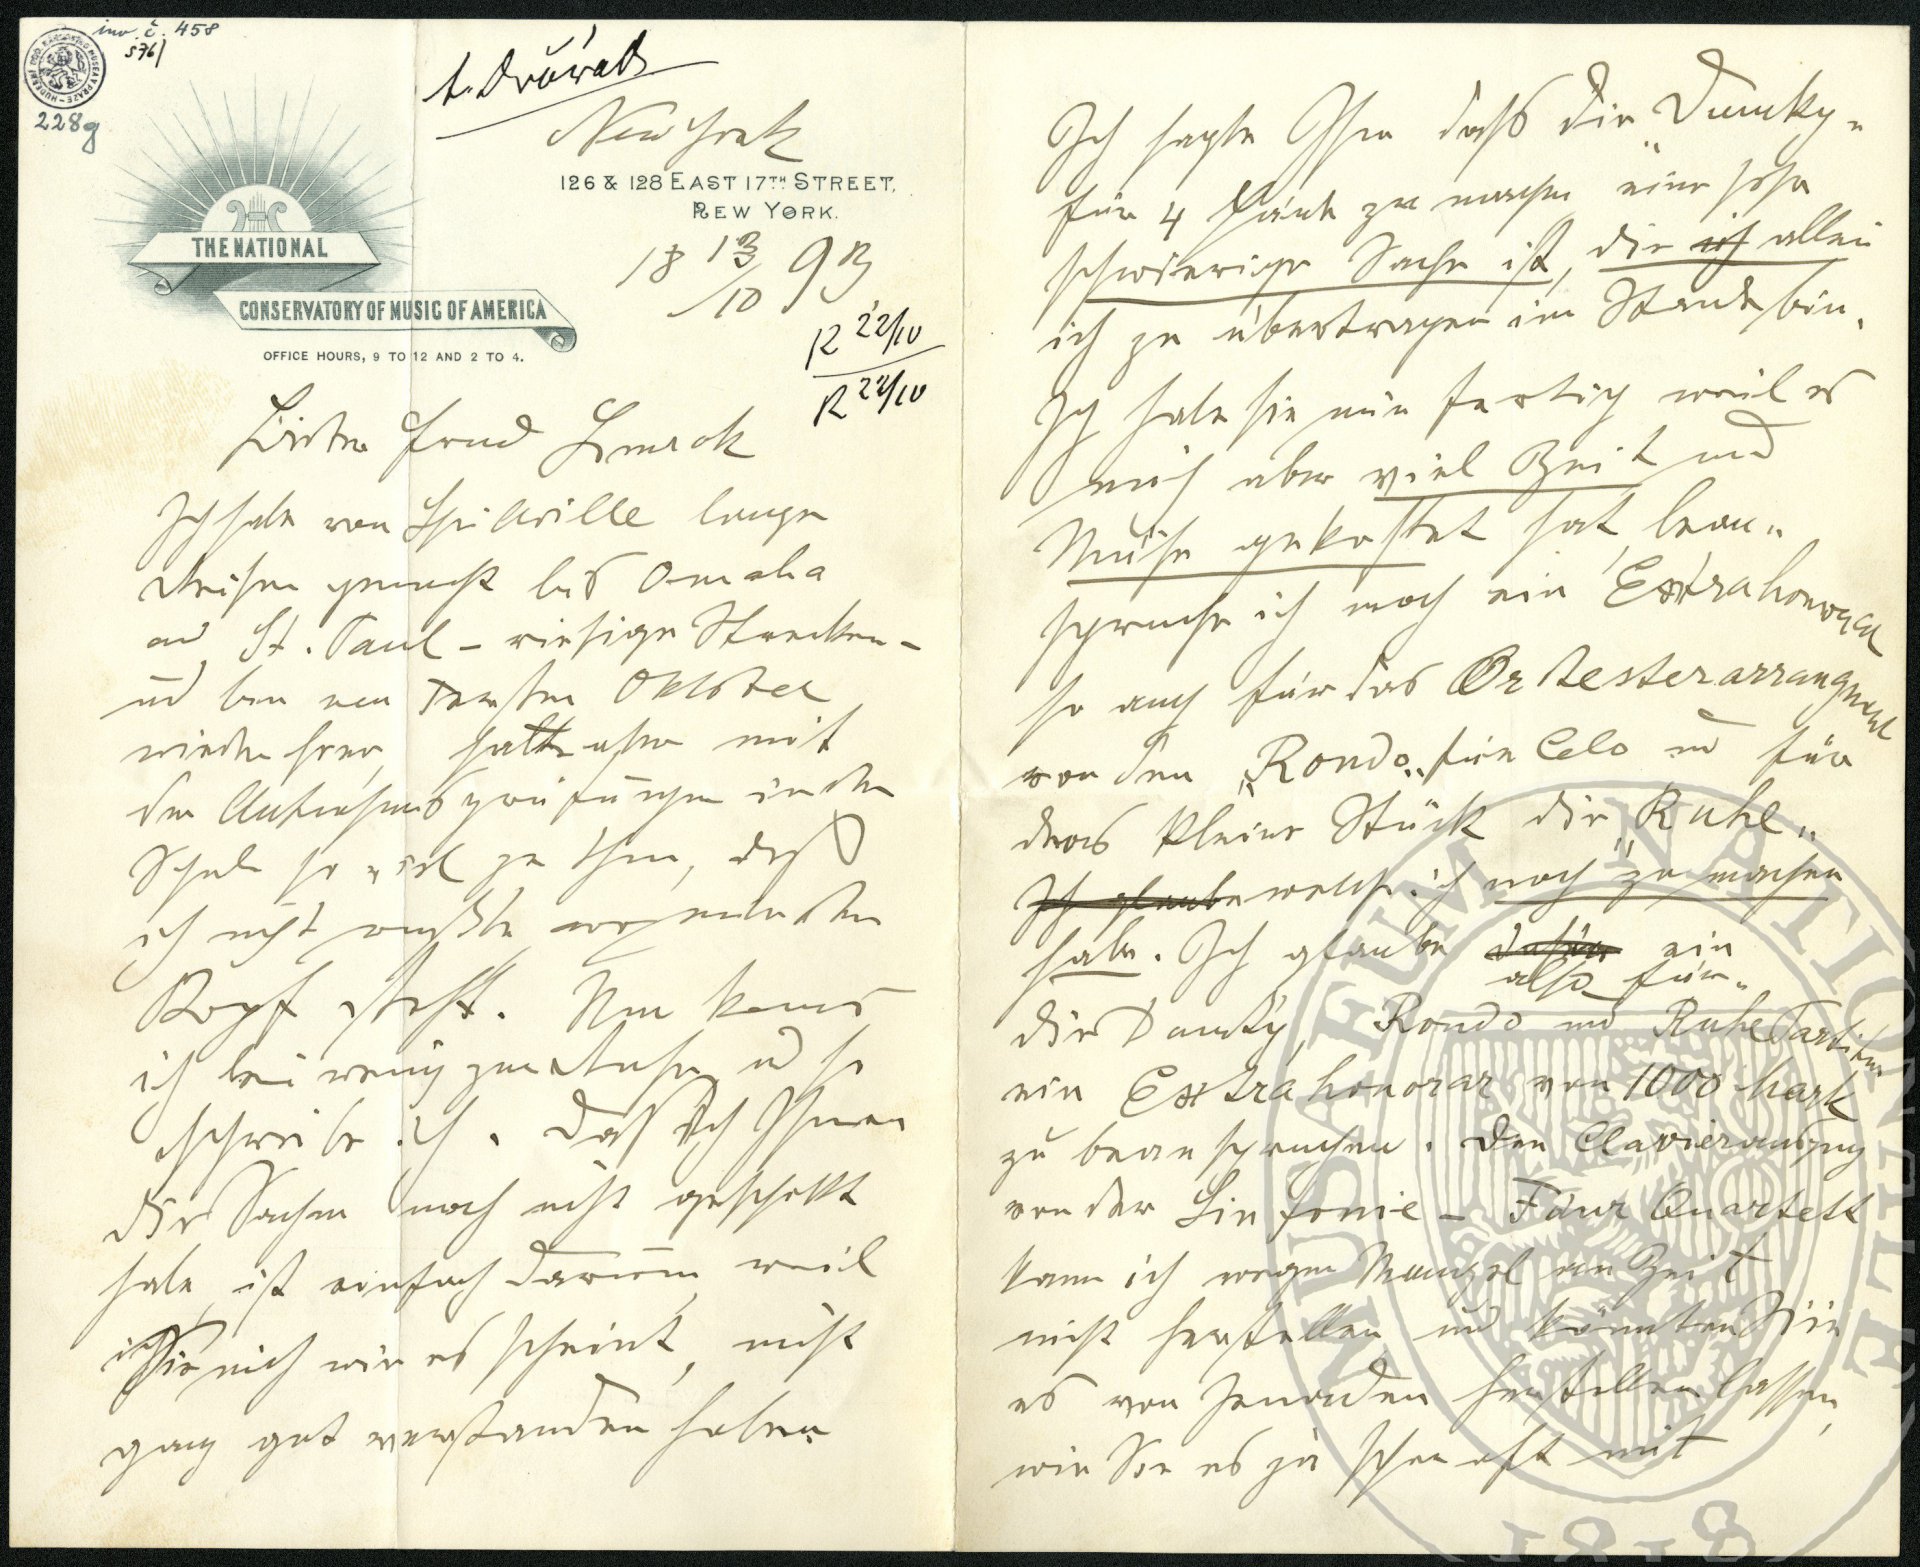 inv. č. 458
S 76/
228g
A. Dvořák
New York
126 & 128 EAST 17TH STREET,
NEW YORK.
THE NATIONAL
CONSERVATORY OF MUSIC OF AMERICA
OFFICE HOURS, 9 TO 12 AND 2 TO 4.
18 13/10 93
R 22/10
R 22/10
Lieber Freund Simrock
Ich habe von Spillville lange
Reisen gemacht bis Omaha
und St. Paul – riesige Strecken –
und bin von Ersten Oktober
wieder hier, hatte aber mit
den Aufnahmsprüfungen in der
Schule so viel zu thun, daß
ich nicht wußte wo mir der
Kopf steht. Nun komme
ich bei wenig zur Ruhe und so
schreibe ich. Daß ich Ihnen
die Sachen noch nicht geschickt
habe, ist einfach darum, weil
Sie mich wie es scheint, nicht
ganz gut verstanden haben
Ich sagte Ihnen daß die "Dumky"
für 4 Hände zu machen eine sehr
schwierige Sache ist, die allein
ich zu übertragen im Stande bin.
Ich habe sie nun fertig weil es
mich aber viel Zeit und
Mühe gekostet hat, bean-
spruche ich noch ein Extrahonorar
so auch für das Orchesterarrangment
von den "Rondo" für Celo und für
das kleine Stück die "Ruhe"
Ich glaube welche ich noch zu machen
habe. Ich glaube dafür ein
also für
die Dumky, Rondo und Ruhe Partitur
ein Extrahonorar von 1000 Mark
zu beanspruchen. Den Clavierauszug
von der Sinfonie – Four Quartett
kann ich wegen Mangel an Zeit
nicht herstellen und könnten Sie
es von Jemanden herstellen lassen,
wie Sie es ja schon oft mit
MUSAEUM NATIONALE
1818